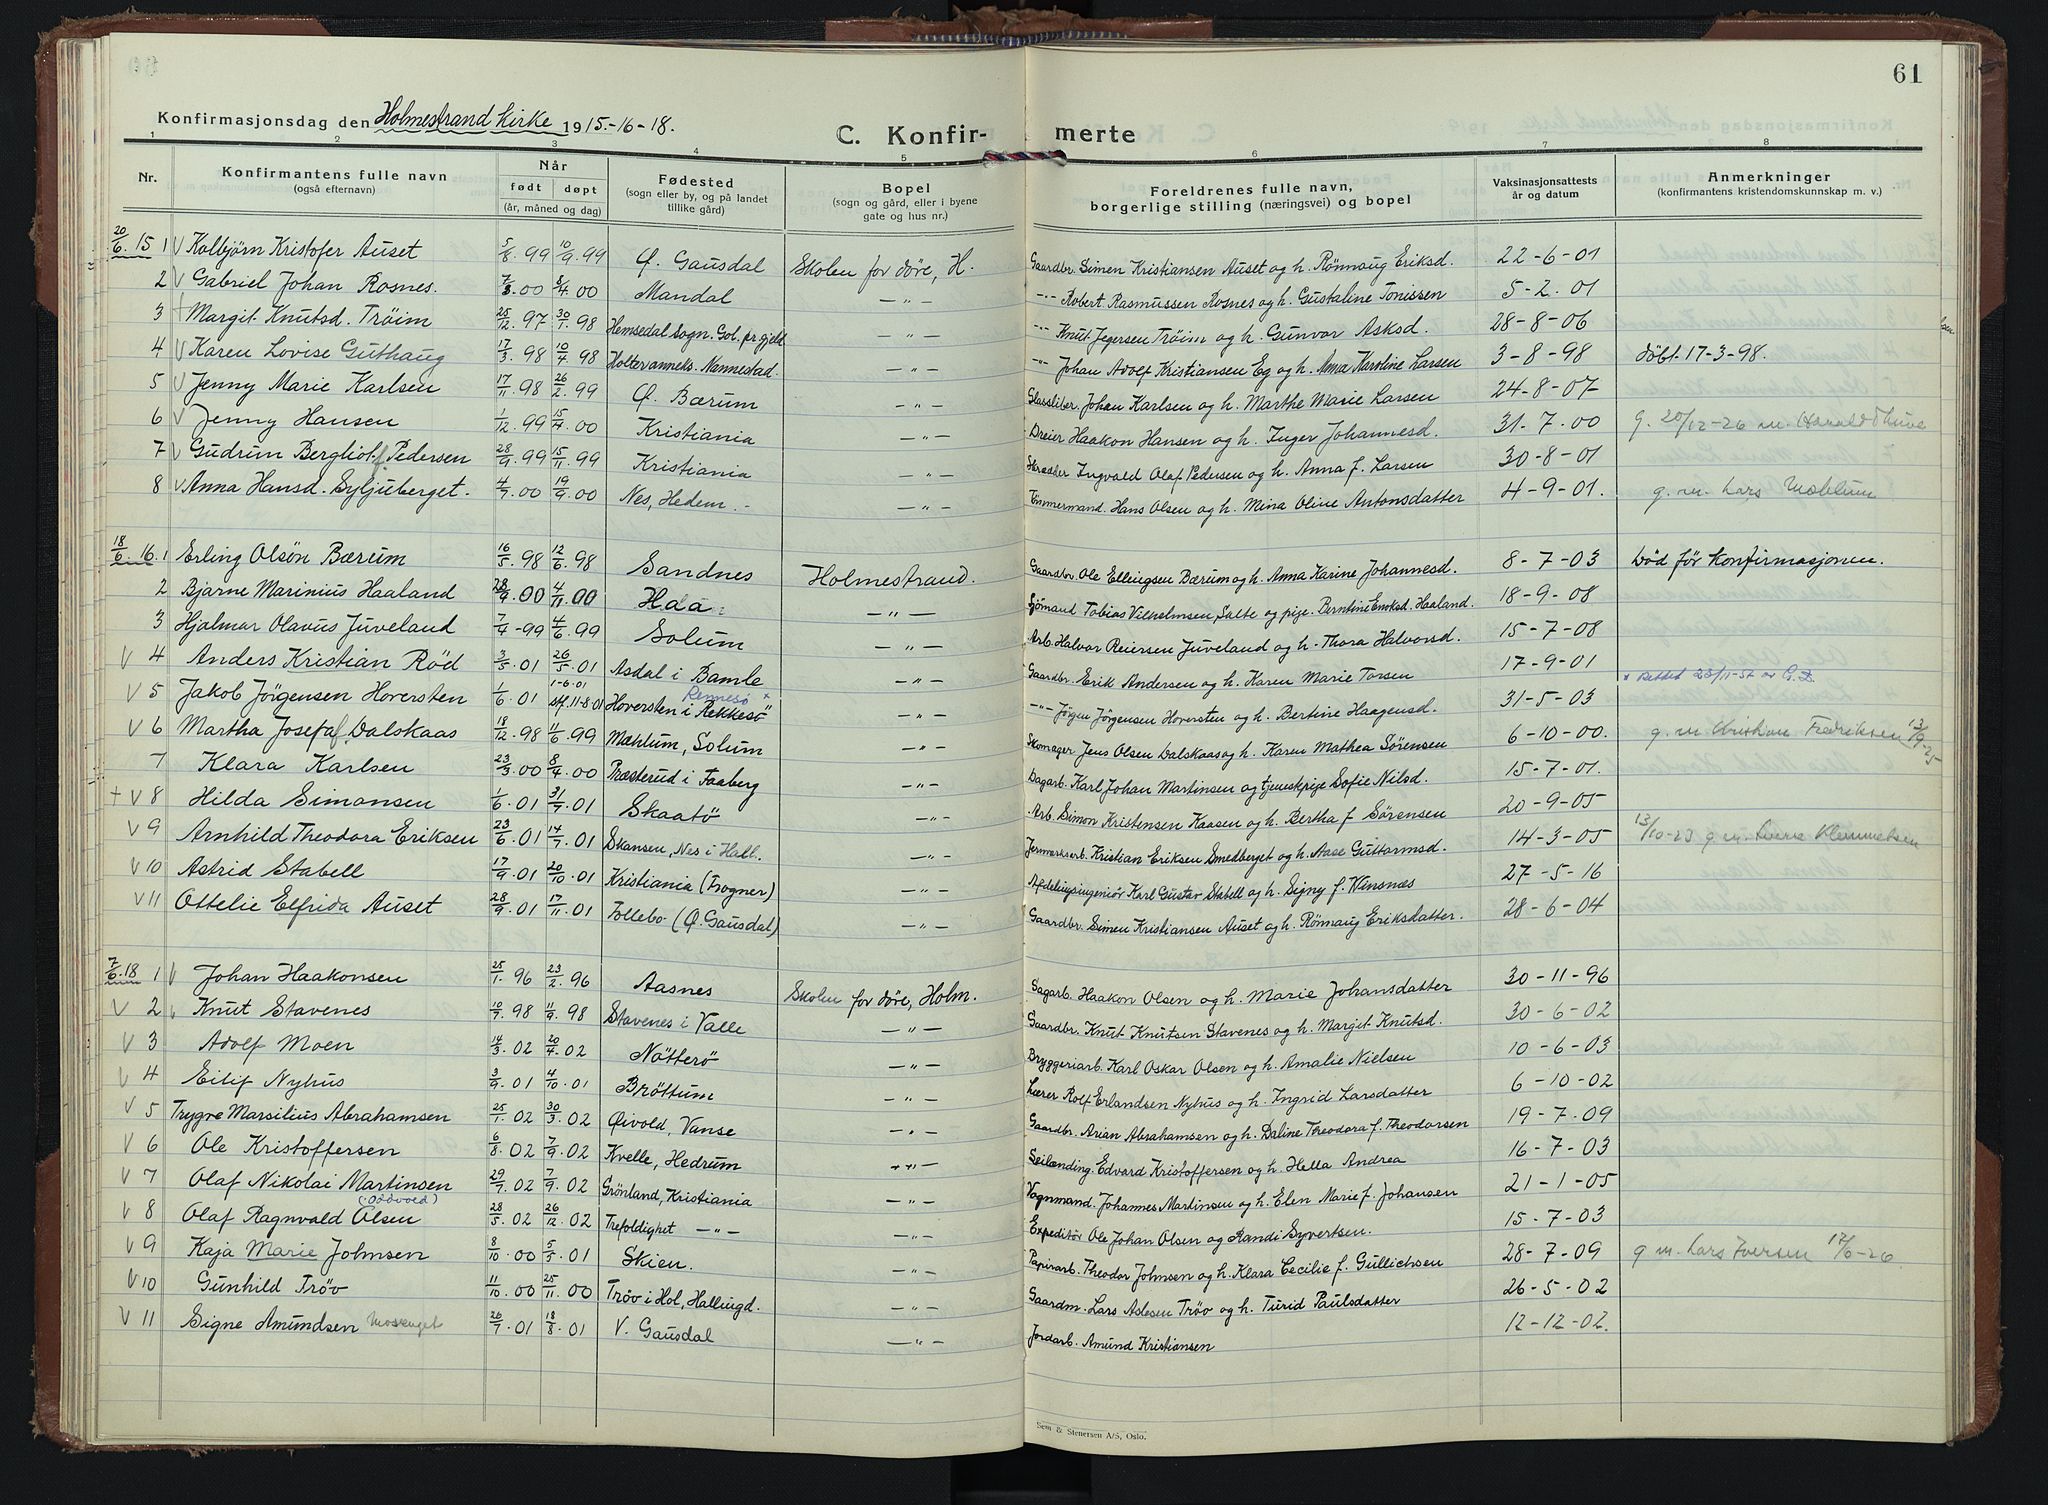 61
Konfirmasjonsdag den Holmestrand kirke 1915.-16-18.
C. Konfir- merte
1 2 3 4 5 6 7 8
Nr. Konfirmantens fulle navn (også efternavn) Når født døpt (år, måned og dag) Fødested (sogn eller by, og på landet tillike gård) Bopel (sogn og gård, eller i byene gate og hus nr.) Foreldrenes fulle navn, borgerlige stilling (næringsvei) og bopel Vaksinasjonsattests år og datum Anmerkninger (konfirmantens kristendomskunnskap m. v.)
20/6. 15 1 V Kolbjørn Kristofer Auset 5/8.99 10/9.99 Ø. Gausdal Skolen for døve, H. Gaardbr. Simen Kristiansen Auset og h. Rönnaug Eriksd. 22-6-01
2 V Gabriel Johan Rosnes. 7/3.00 8/4.00 Mandal —"— —"— Robert Rasmussen Rosnes og h. Gustaline Tonissen 5-2.01
3 Margit Knutsd. Tröim 25/12.97 30/1.98 Hemsedal sogn. Gol. pr.gjeld —"— —"— Knut Jegersen Tröim og h. Gunvor Asksd. 28-8-06
4 V Karen Lovise Guthaug 17/3.98 10/4.98 Holter anneks. Nannestad. —"— —"— Johan Adolf Kristiansen Eg og h. Anna Karoline Larsen 3-8-98 døbt 17-3-98.
5 V Jenny Marie Karlsen 17/11.98 26/2.99 Ø. Bærum —"— Glassliber Johan Karlsen og h. Marthe Marie Larsen 24-8-07
6 V Jenny Hansen 1/12.99 15/4.00 Kristiania —"— Dreier Haakon Hansen og h. Inger Johannesd. 31-7.00 g. 20/12-26 m. Harald Thuve
7 V Gudrun Bergliot f. Pedersen 28/9.99 15/11.99 Kristiania —"— Skrædder Ingvald Olaf Pedersen og h. Anna f. Larsen 30-8-01
8 V Anna Hansd. Syljuberget. 4/7.00 19/9.00 Nes, Hedem.- —"— Tömmermand. Hans Olsen og h. Mina Oline Antonsdatter 4-9-01. g. m. Lars Mæhlum
18/6. 16. 1 Erling Olsön Bærum 16/5.98 12/6.98 Sandnes Holmestrand. Gaardbr. Ole Ellingsen Bærum og h. Anna Karine Johannesd. 8-7-03 Død før konfirmasjonen.
2 Bjarne Marinius Haaland 28/9.00 4/11.00 Haa. —"— Sjömand Tobias Vilhelmsen Salte og pige Berntine Enoksd. Haaland. 18-9-08
3 Hjalmar Olavus Juveland 7/4-99 4/6.99 Solum —"— Arb. Halvor Reiersen Juveland og h. Thora Halvorsd. 15-7-08
V 4 Anders Kristian Röd 3/5.01 26/5.01 Asdal i Bamle —"— Gaardbr. Erik Andersen og h. Karen Marie Torsen 17-9-01
V 5 Jakob Jörgensen Hoversten 1/6.01 1-6.01 stf. 11-8-01 Hoversten i Rekkesö Rennesö x —"— —"— Jörgen Jörgensen Hoversten og h. Bertine Haagensd. 31-5-03 x Rettet 23/11-57 av G.D.
V 6 Martha Josefa f. Dalskaas 18/12.98 11/6.99 Mæhlum, Solum —"— Skomager Jens Olsen Dalskaas og h. Karen Mathea Sörensen 6-10-00. g. m Christian Fredriksen 13/9-25
7 Klara Karlsen 23/3.00 8/4.00 Præsterud i Faaberg —"— Dagarb. Karl Johan Martinsen og tjenestepige Sofie Nilsd. 15-7-01.
+ V 8 Hilda Simonsen 1/6.01 31/7.01 Skaatö —"— Arb. Simon Kristensen Kaasen og h. Bertha f. Sörensen 20-9-05
V 9 Arnhild Theodora Eriksen 23/6.01 14/7.01 Skansen, Nes i Hall. —"— Jernverksarb. Kristian Eriksen Smedberget og h. Aase Guttormsd. 14-3-05 13/10-23 g. m. Sverre Klemmetsen
V 10 Astrid Stabell 17/9.01 20/10.01 Kristiania (Frogner) —"— Afdelingsingeniör Karl Gustav Stabell og h. Signy f. Winsnæs 27-5-16
V 11 Ottelie Elfrida Auset 28/9.01 17/11.01 Follebo (Ø. Gausdal) —"— Gaardbr. Simen Kristiansen Auset og h. Rönnaug Eriksdatter. 28-6-04
7/6.18 1 V Johan Haakonsen 25/1.96 23/2.96 Aasnes Skolen for døve, Holm. Sagarb. Haakon Olsen og h. Marie Johansdatter 30-11-96
V 2 Knut Stavenes 10/7.98 11/9.98 Stavenes i Valle —"— Gaardbr. Knut Knutsen Stavenes og h. Margit Knutsd. 30-6-02
V 3 Adolf Moen 14/3.02 20/4.02 Nötterö —"— Bryggeriarb. Karl Oskar Olsen og h. Amalie Nielsen 10-6-03
V 4 Eilif Nyhus 3/9.01 4/10.01 Bröttum —"— Lærer Rolf Erlandsen Nyhus og h. Ingrid Larsdatter 6-10-02
V 5 Trygve Marsilius Abrahamsen 25/1.02 30/3.02 Øivold, Vanse —"— Gaardbr. Arian Abrahamsen og h. Daline Theodora f. Theodorsen 19-7.09
V 6 Ole Kristoffersen 6/8.02 7/9.02 Kvelle, Hedrum —"— Seilænding. Edvard Kristoffersen og h. Hella Andrea 16-7-03
V 7 Olaf Nikolai Martinsen 29/7.02 7/9.02 Grönland, Kristiania —"— Vognmand. Johannes Martinsen og h. Elen Marie f. Johansen 21-1-05
V 8 Olaf Ragnvald Olsen (Oddvold) 28/5.02 26/12.02 Trefoldighet —"— —"— Expeditör Ole Johan Olsen og Randi Syvertsen. 15-7-03
V 9 Kaja Marie Johnsen 8/10.00 5/5.01 Skien. —"— Papirarb. Theodor Johnsen og h. Klara Cecilie f. Gullichsen 28-7-09 g m. Lars Iversen 12/6-26
V 10 Gunhild Tröv 11/10.00 25/11.00 Tröv i Hol, Hallingd. —"— Gaardm. Lars Aslesen Tröv og h. Turid Paulsdatter 26-5-02
V 11 Signe Amundsen 26/7.01 18/8.01 V. Gausdal —"— Jordarb. Amund Kristiansen 12-12-02.
Sem & Stenersen A/S, Oslo.